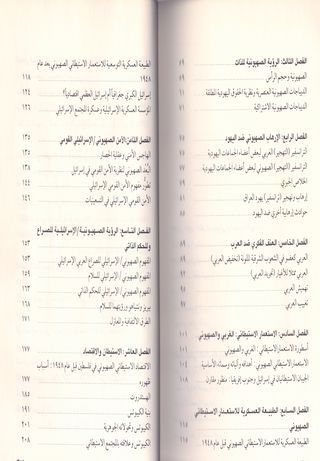 الفصل الثالث: الرؤية الصهيونية للذات ٥٩
الصهيونية وحجم الرأس ٥٩
الديباجات الصهيونية العنصرية ونظرية الحقوق اليهودية المطلقة ٦٦
الديباجات الصهيونية الاشتراكية ٧١
الفصل الرابع: الإرهاب الصهيوني ضد اليهود ٧٥
الترانسفير (التهجير) العربي لبعض أعضاء الجماعات اليهودية ٧٥
الترانسفير (التهجير) الصهيوني لبعض أعضاء الجماعات اليهودية ٧٧
اخلاص الجبري ٧٩
إرهاب وتهجير (ترانسفير) يهود العراق ٨١
حوادث إرهابية أخرى ضد اليهود ٨٥
الفصل الخامس: العنف الفكري ضد العرب ٨٩
العربي كعضو في الشعوب الشرقية الملونة (تخفيض العربي) ٨٩
العربي ممثلا للأغيار (تجريد العربي) ٩٢
تهميش العربي ٩٥
تغييب العربي ٩٧
الفصل السادس: الاستعمار الاستيطاني: الغربي والصهيوني ١٠١
أسطورة الاستعمار الاستيطاني: الغربي والصهيوني ١٠١
الاستعمار الاستيطاني الصهيوني: أهدافه وآلياته وسماته الأساسية ١٠٤
الجيبان الاستيطانيان في إسرائيل وجنوب إفريقيا: منظور مقارن ١٠٨
الفصل السابع: الطبيعة العسكرية للاستعمار الاستيطاني
الصهيوني ١١٥
الطبيعة العسكرية للاستعمار الاستيطاني الصهيوني قبل عام ١٩٤٨ ١١٥
الطبيعة العسكرية التوسعية للاستعمار الاستيطاني الصهيوني بعد عام
١٩٤٨ ١١٨
إسرائيل الكبرى جغرافياً أم إسرائيل العظمى اقتصادياً؟ ١٢٤
المؤسسة العسكرية الإسرائيلية وعسكرة المجتمع الإسرائيلي ١٢٦
الفصل الثامن: الأمن الصهيوني/الإسرائيلي القومي ١٣٥
الهاجس الأمني وعقلية الحصار ١٣٥
البعد الصهيوني لنظرية الأمن القومي في إسرائيل ١٣٨
تطور مفهوم الأمن القومي الإسرائيلي ١٤٤
الأمن القومي الإسرائيلي في التسعينيات ١٤٦
الفصل التاسع: الرؤية الصهيونية/الإسرائيلية للصراع
وللحكم الذاتي ١٥٣
الإدراك الصهيوني/الإسرائيلي للصراع العربي الإسرائيلي ١٥٣
الإدراك الصهيوني/الإسرائيلي للسلام ١٥٩
الإدراك الصهيوني/الإسرائيلي للحكم الذاتي ١٦٣
بيريز ونتنياهو ورؤيتهما للسلام ١٦٨
الطرق الالتفافية والمعازل ١٧١
الفصل العاشر: الاستيطان والاقتصاد ١٧٧
الاقتصاد الاستيطاني الصهيوني في فلسطين قبل عام ١٩٤٨: أسباب
ظهوره ١٧٧
الهستدروت ١٨٥
بنية الكيبوتس ١٩١
الكيبوتس وتحولاته الجوهرية ٢٠١
الكيبوتس وعلاقته بالمجتمع الاستيطاني ٢٠٨